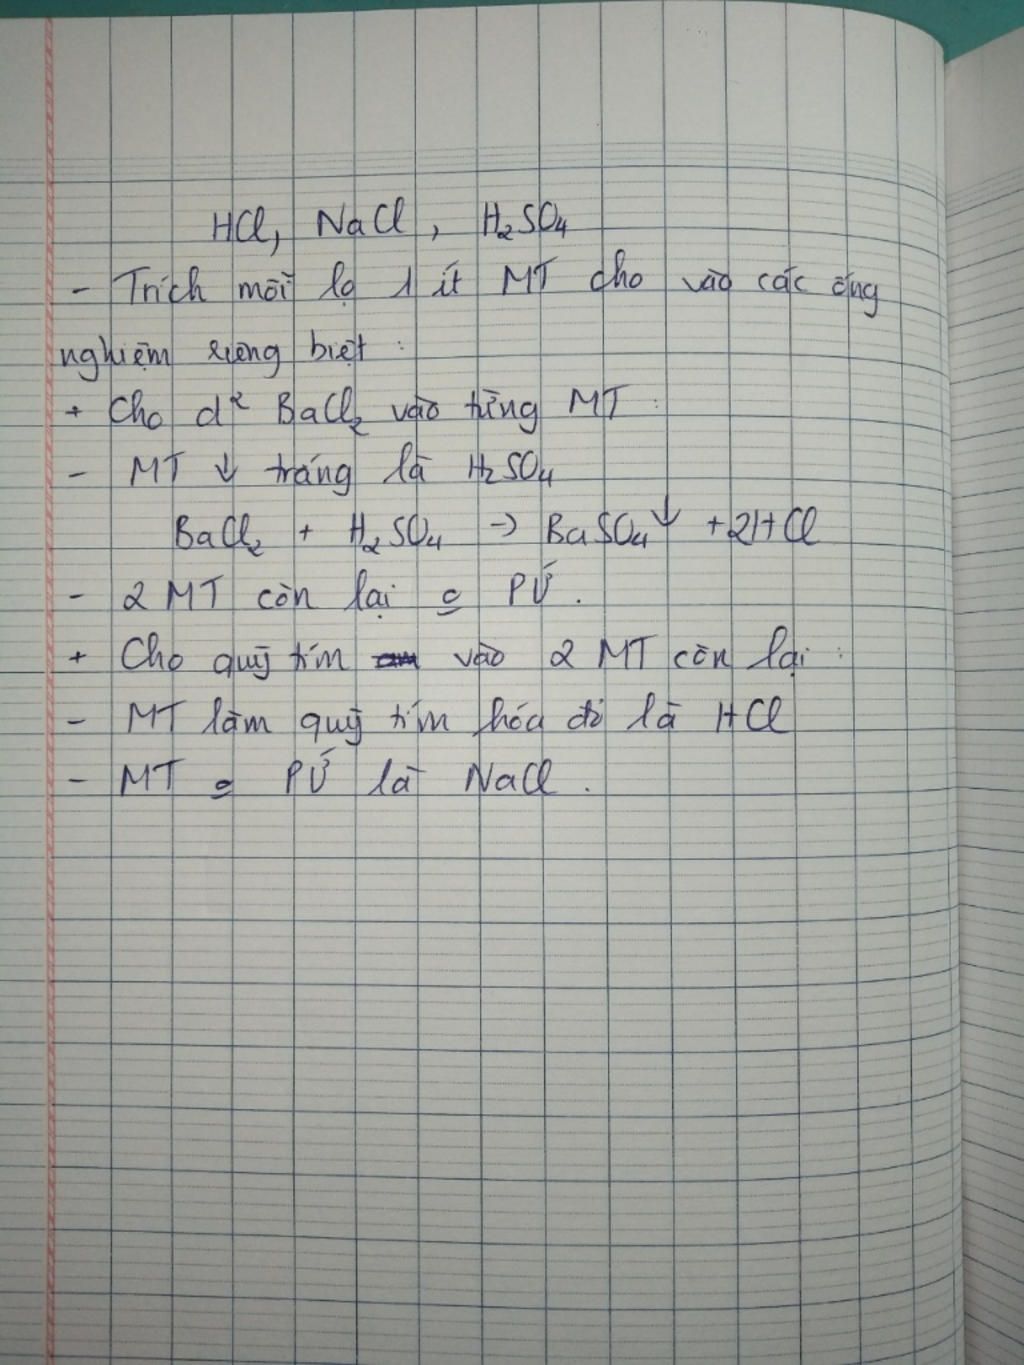 HCl, NaCl, H₂SO₄
- Trích mỗi lọ 1 ít MT cho vào các ống
nghiệm riêng biệt :
+ Cho d² BaCl₂ vào từng MT :
- MT ↓ trắng là H₂SO₄
BaCl₂ + H₂SO₄ → BaSO₄↓ + 2HCl
- 2 MT còn lại o PỨ.
+ Cho quỳ tím vào 2 MT còn lại :
- MT làm quỳ tím hóa đỏ là HCl
- MT o PỨ là NaCl.